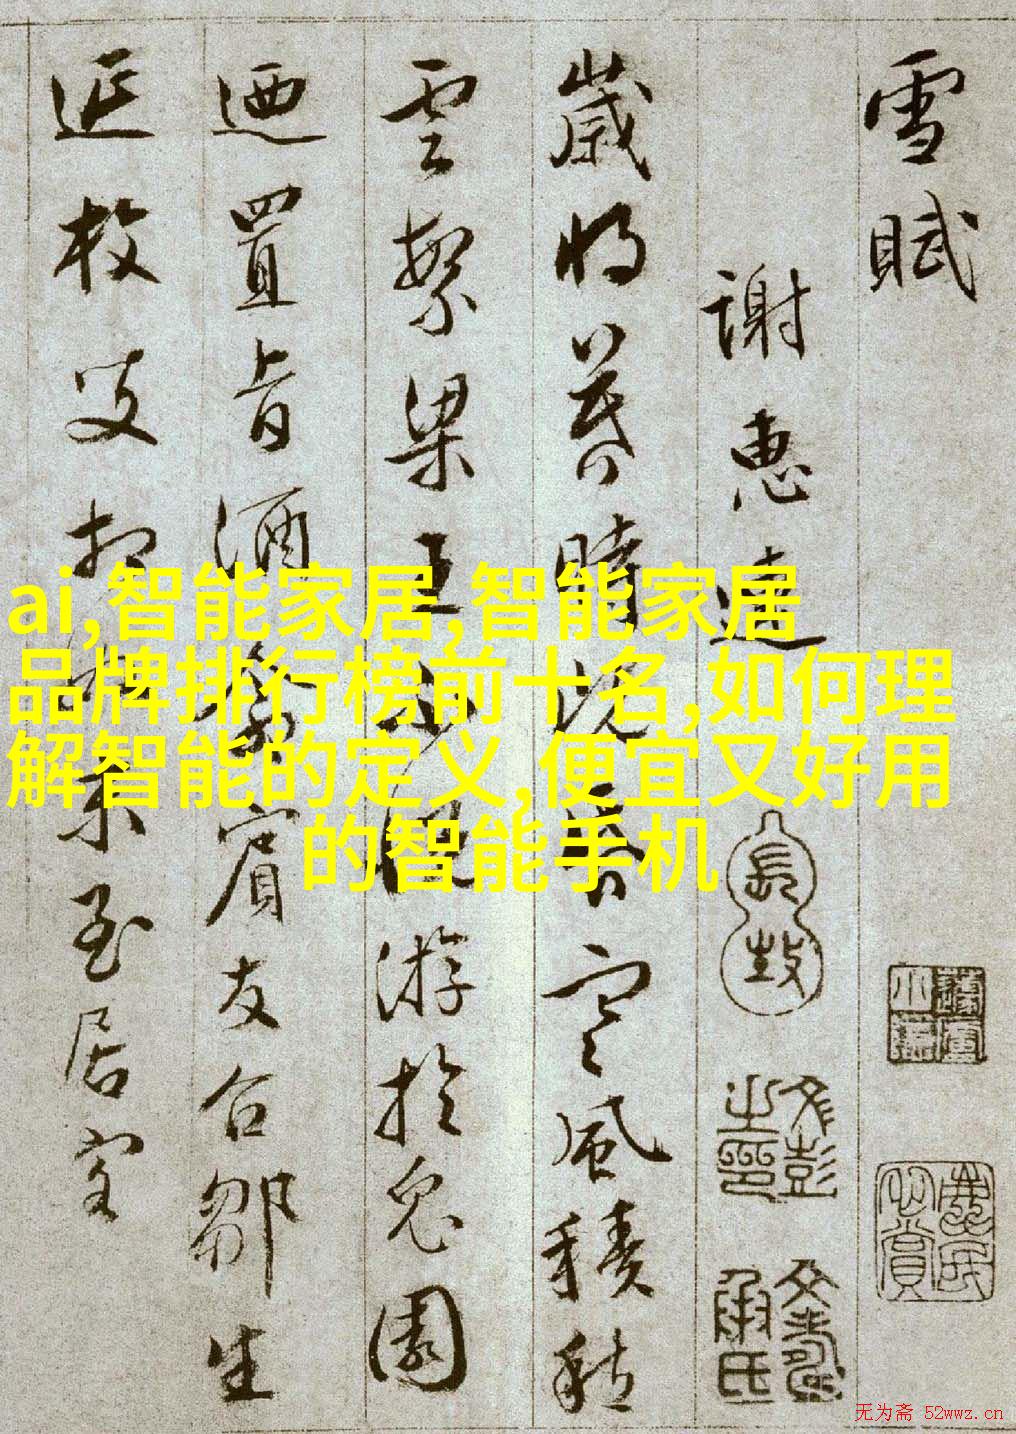 雪賦
謝惠連
歲將暮時既昏寒風積愁
雲繁梁王不悅游於兔園
迺置旨酒命賓友召鄒生
延枚叟相如末至居客
文彭之印
ai,智能家居,智能家居
品牌排行榜前十名,如何理
解智能的定义,便宜又好用
的智能手机
无为斋 52wwz.cn